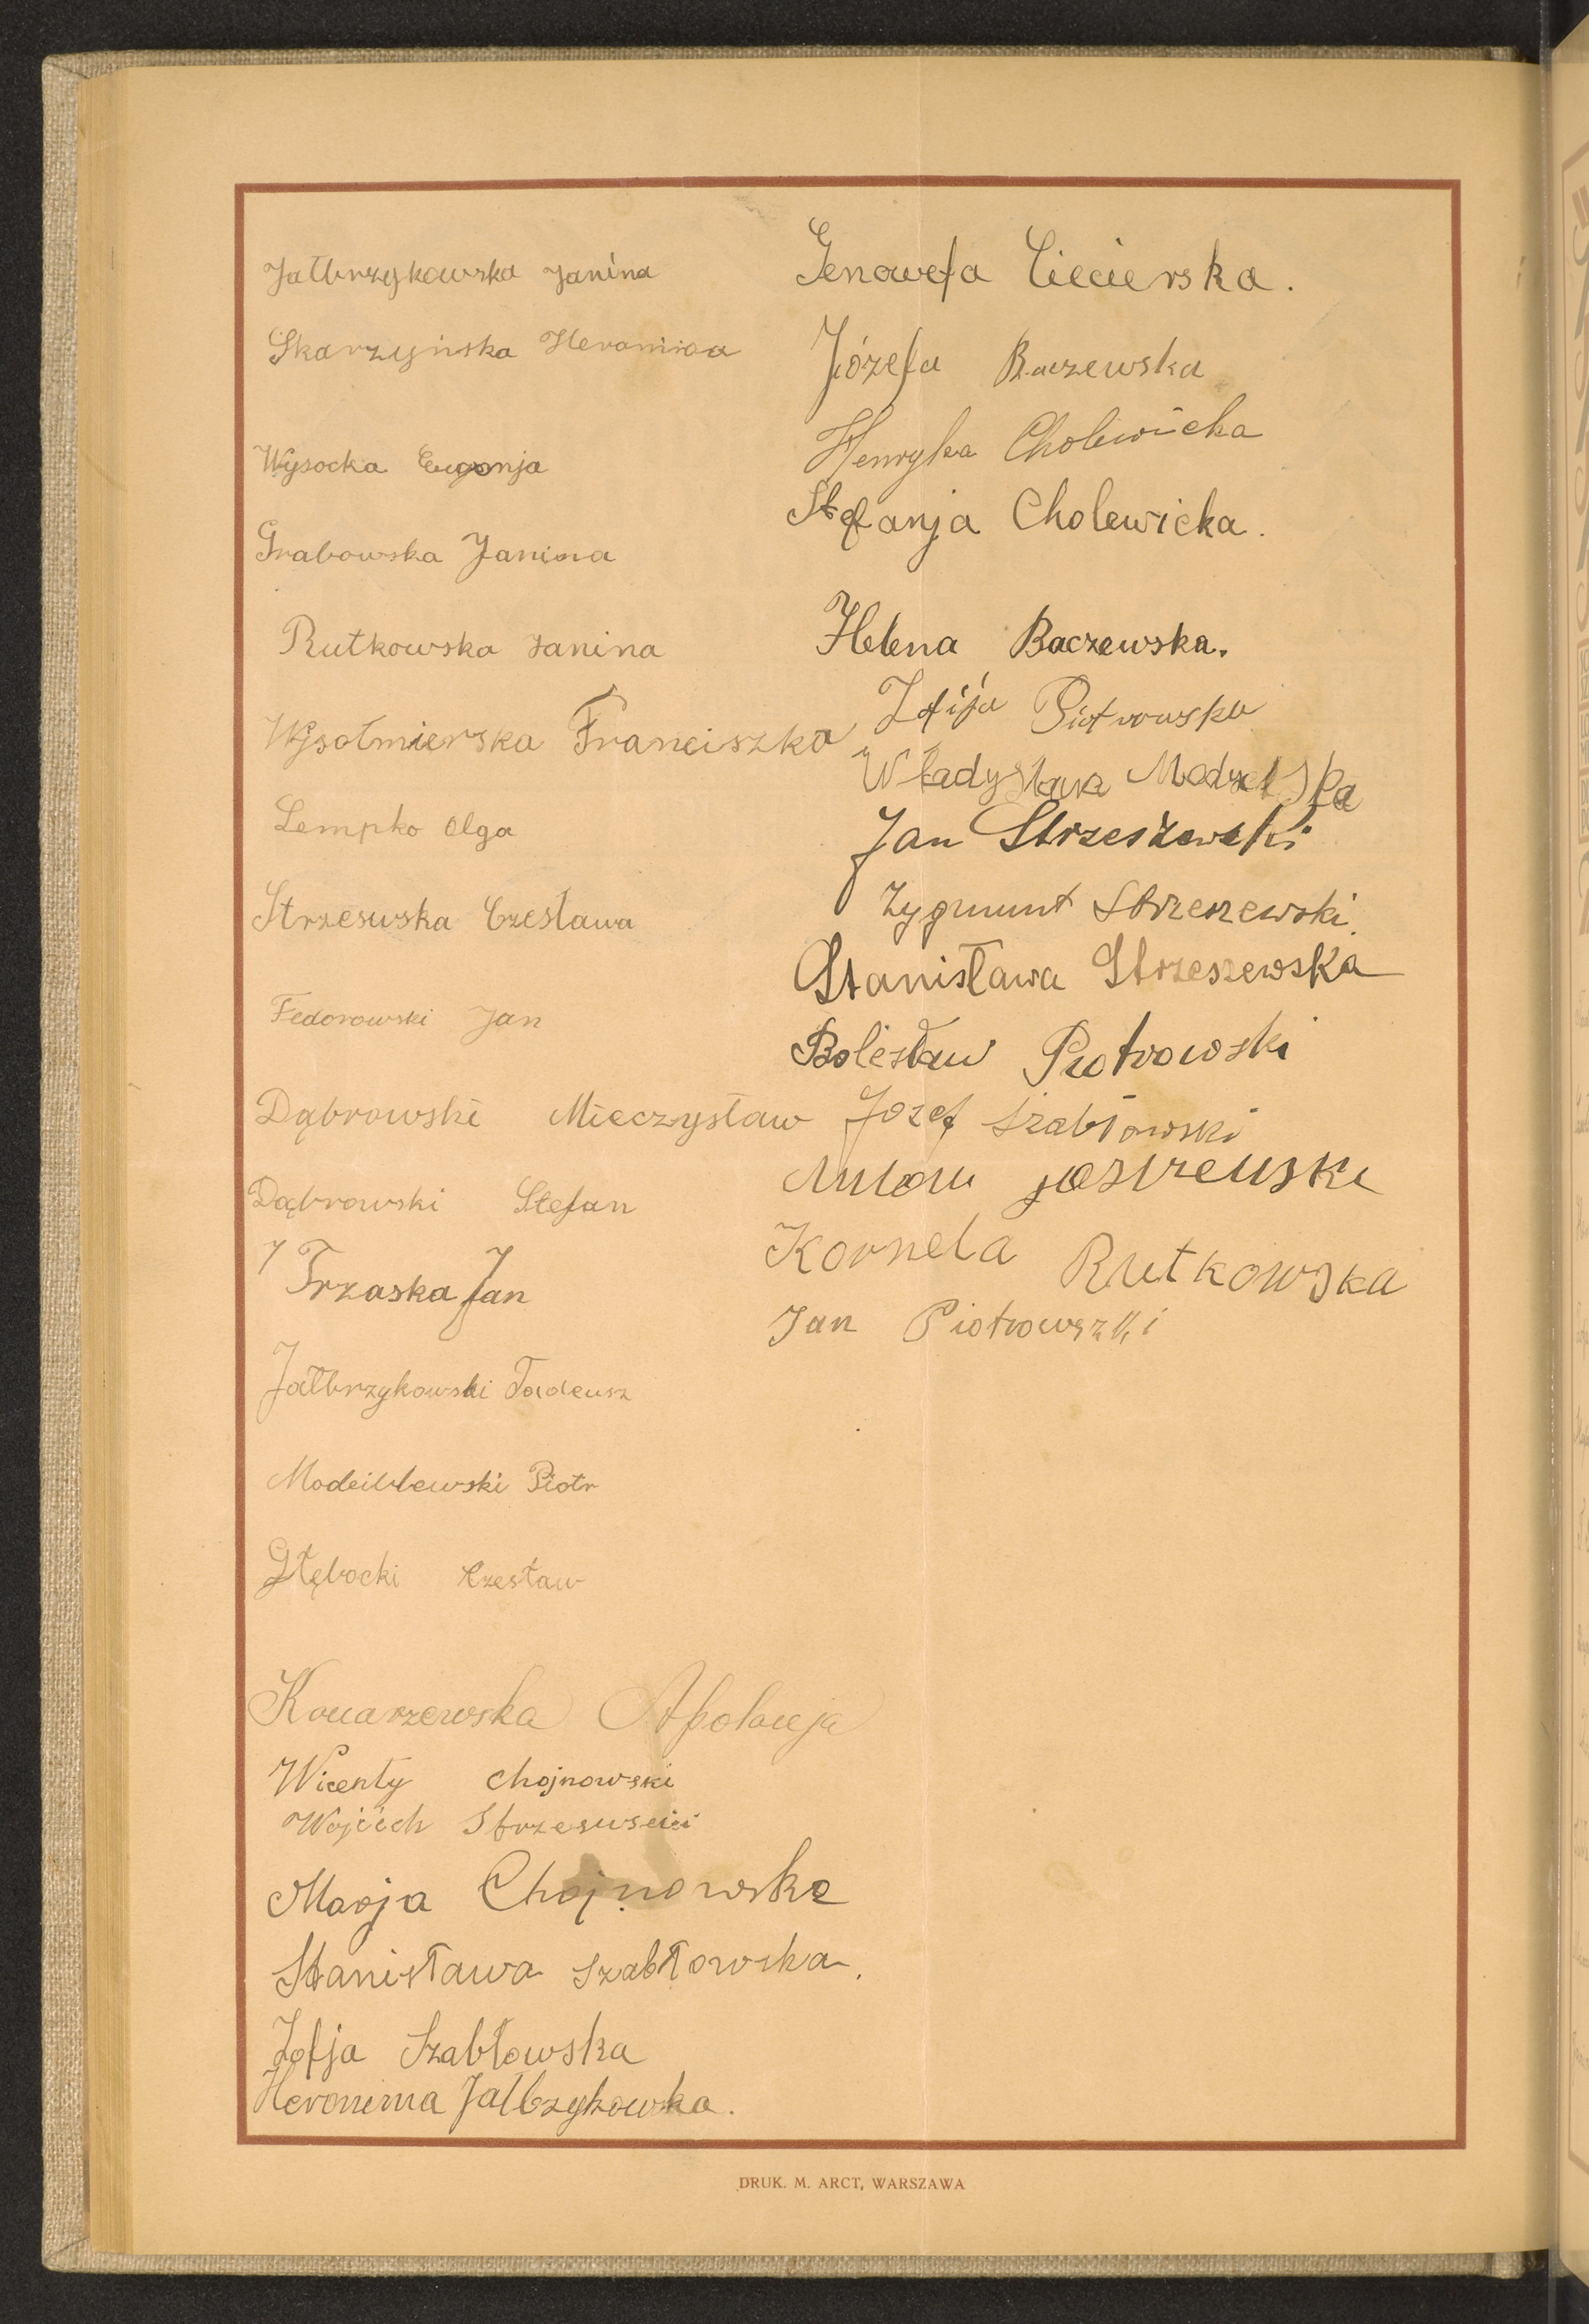 Jałbrzykowska Janina
Skarzyńska Heronima
Wysocka Eugenja
Grabowska Janina
Rutkowska Janina
Wysołmierska Franciszka
Lempko Olga
Strzesuska Czesława
Fedorowski Jan
Dąbrowski Mieczysław
Dąbrowski Stefan
Trzaska Jan
Jałbrzykowski Tadeusz
Piotr
Głębocki Czesław
Apolonja
Wicenty Chojnowski
Wojcich
Marja Chojnowska
Stanisława Szabłowska.
Zofja Szabłowska
Heronima Jałbzykowska.
Genowefa Ciecierska.
Józefa Baczewska
Henryka Cholewicka
Stefanja Cholewicka.
Helena Baczewska.
Zofija Piotrowska
Władysława
Jan Strzeszewski
Zygmunt Strzeszewski.
Stanisława Strzeszewska
Bolesław Piotrowski
Jozef Szabłowski
Kornela Rutkowska
Jan Piotrowszki
DRUK. M. ARCT, WARSZAWA